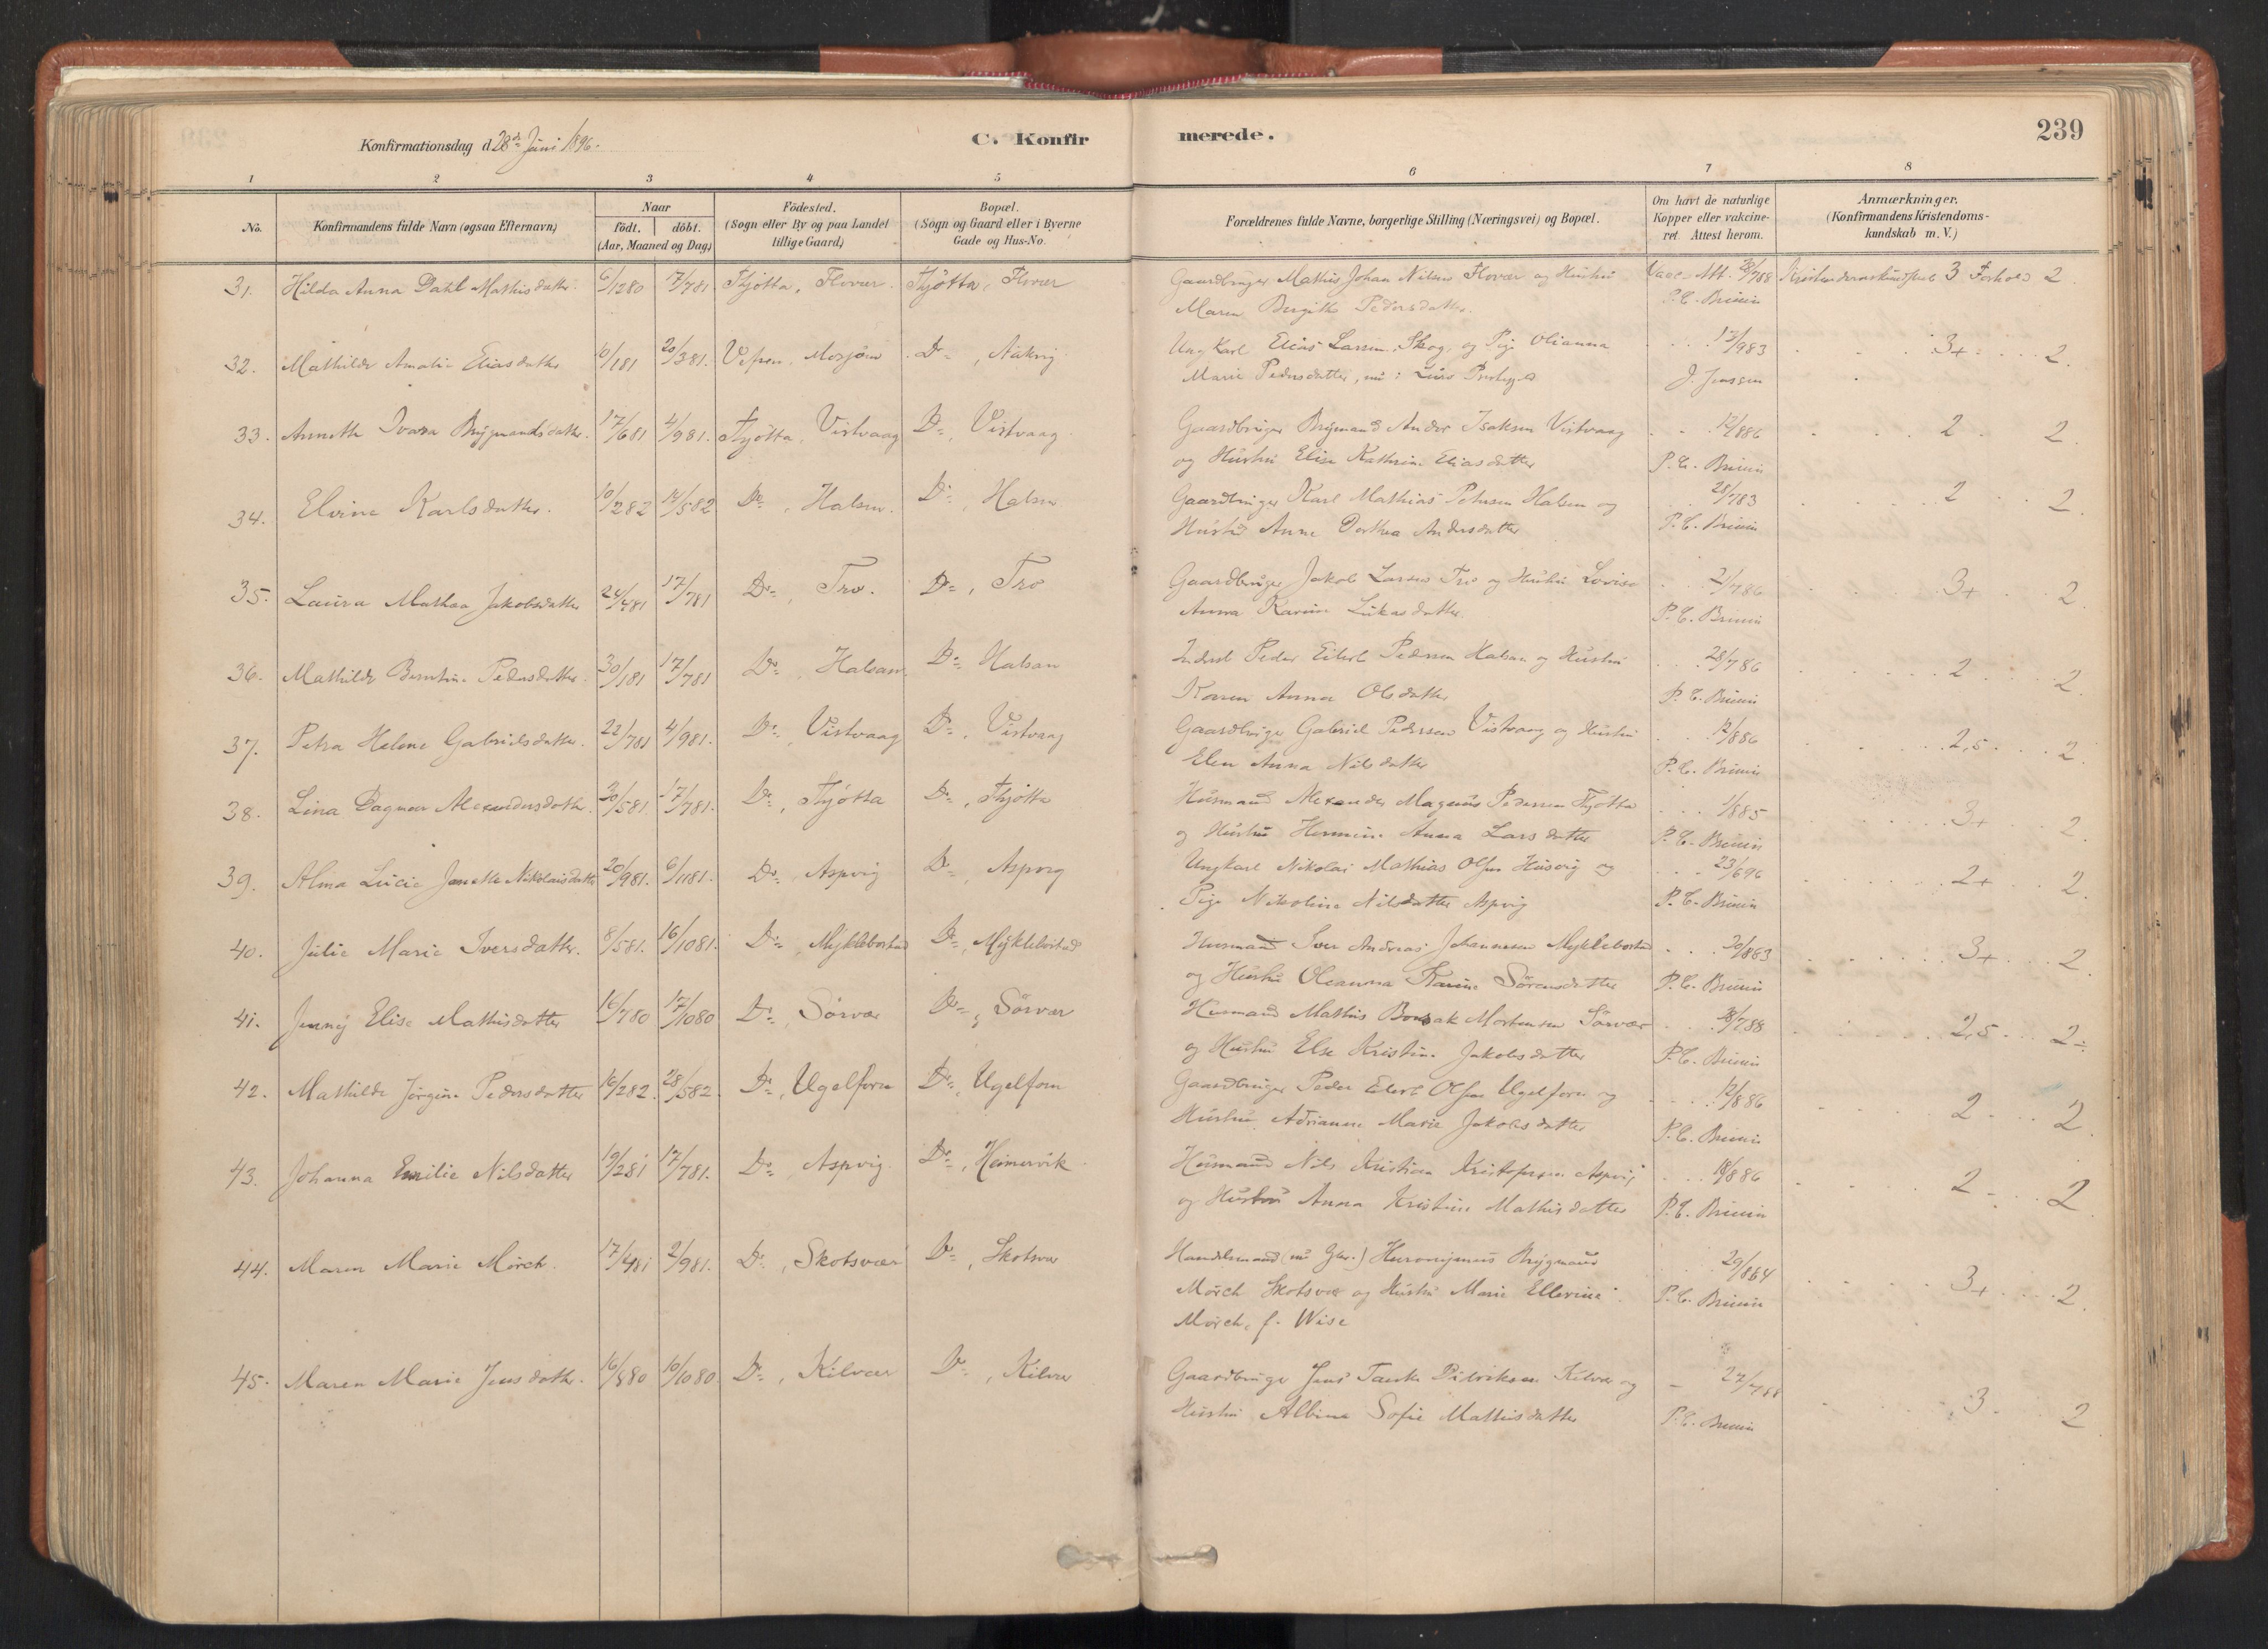 Konfirmationsdag d. 28de Juni 1896.
C. Konfirmerede.
239
1 2 3 4 5 6 7 8
No.
Konfirmandens fulde Navn (ogsaa Efternavn)
Naar
født. døbt.
(Aar, Maaned og Dag)
Födested.
(Sogn eller By og paa Landet
tillige Gaard)
Bopæl.
(Sogn og Gaard eller i Byerne
Gade og Hus-No.
Forældrenes fulde Navne, borgerlige Stilling (Næringsvei) og Bopæl.
Om havt de naturlige
Kopper eller vakcine-
ret. Attest herom.
Anmærkninger.
(Konfirmandens Kristendoms-
kundskab m. V.)
31. Hilda Anna Dahl Mathisdatter 6/1280 17/781 Thjötta, Flovær Thjötta, Flovær Gaardbruger Mathis Johan Nilsen Flovær og Hustru Vacc. Att. /788 3 Forhold 2
Maren Birgitte Pedersdatter. P.C. Brinin
32. Mathilde Amalie Eliasdatter 6/181 20/381. Vefsen, Mosjøen Do, Ungkarl Elias Larsen, Skog, og Pige Olianna 13/983 3+ 2.
Marie Pedersdatter, nu: Lurö J. Jenssen
33. Annette Ivara Brygmandsdatter. 17/681 4/981. Thjötta, Vistvaag Do, Vistvaag Gaardbruger Brygmand Andor Isaksen Vistvaag 12/886 2 2.
og Hustru Elise Kathrine Eliasdatter P.C. Brinin
34. Elvine Karlsdatter. 10/282 14/582 Do, Halsen. Do, Halsen Gaardbruger Karl Mathias Petersen Halsen og 28/783 2 2.
Hustru Anne Dorthea Andersdatter P.C. Brinin
35. Laura Mathea Jakobsdatter 24/481 17/781 Do, Tro. Do, Tro Gaardbruger Jakob Larsen Tro og Hustru Lovise 2/786 3+ 2.
Anna Karine Lukasdatter. P.C. Brinin
36. Mathilde Berntine Pedersdatter 30/181 17/781 Do, Halsan Do, Halsan Inderst Peder Eilert Pedersen Halsan og Hustru 28/786 2 2.
Karen Anna Olsdatter P.C. Brinin
37. Petra Helene Gabrielsdatter. 22/781 4/981. Do, Vistvaag Do, Vistvaag Gaardbruger Gabriel Pedersen Vistvaag og Hustru 12/886 2,5 2.
Elen Anna Nilsdatter P.C. Brinin
38. Lina Dagmar Alexandersdatter. 30/581 17/781. Do, Thjötta Do, Thjötta Husmand Alexander Magnus Pedersen Thjötta 1/885 3+ 2.
og Hustru Hermine Anna Larsdatter P.C. Brinin
39. Alma Lucie Janette Nikolaisdatter 20/981. 6/1181. Do, Aspvig Do, Aspvig Ungkarl Nikolai Mathias Olsen Husvig og 23/696 2+ 2.
Pige Nikoline Nilsdatter Aspvig P.C. Brinin
40. Julie Marie Iversdatter. 8/581. 16/1081. Do, Myklebostad Do, Myklebostad Husmand Iver Andreas Johannesen Myklebostad 20/883 3+ 2.
og Hustru Oleanna Karine Sörensdatter P.C. Brinin
41. Jenny Elise Mathisdatter 16/780 17/1080 Do, Sörvær Do, Sörvær Husmand Mathis Mortensen Sörvær /788 2,5 2÷
og Hustru Else Kristine Jakobsdatter P.C. Brinin
42. Mathilde Jörgine Pedersdatter 16/282. 28/582. Do, Ugelforn Do, Ugelforn Gaardbruger Peder Elert Olsen Ugelforn og 12/886 2 2.
Hustru Adrianne Marie Jakobsdatter P.C. Brinin
43. Johanna Emilie Nilsdatter 19/281 17/781. Do, Aspvig. Do, Heimervik Husmand Nils Kristian Kristofersen Aspvig 18/886 2 2.
og Hustru Anna Kristine Mathisdatter P.C. Brinin
44. Maren Marie Mörch. 17/481 2/981. Do, Skotsvær Do, Skotsvær Handelsmand (nu Gbr.) Hieronymus Brygmand 29/884 3+ 2.
Mörch Skotsvær og Hustru Marie Ellevine P.C. Brinin
Mörch, f. Wise
45. Maren Marie Jensdatter. 16/880 10/1080 Do, Kilvær Do, Kilvær Gaardbruger Jens Didriksen Kilvær og 27/788 3 2
Hustru Albine Sofie Mathisdatter P.C. Brinin